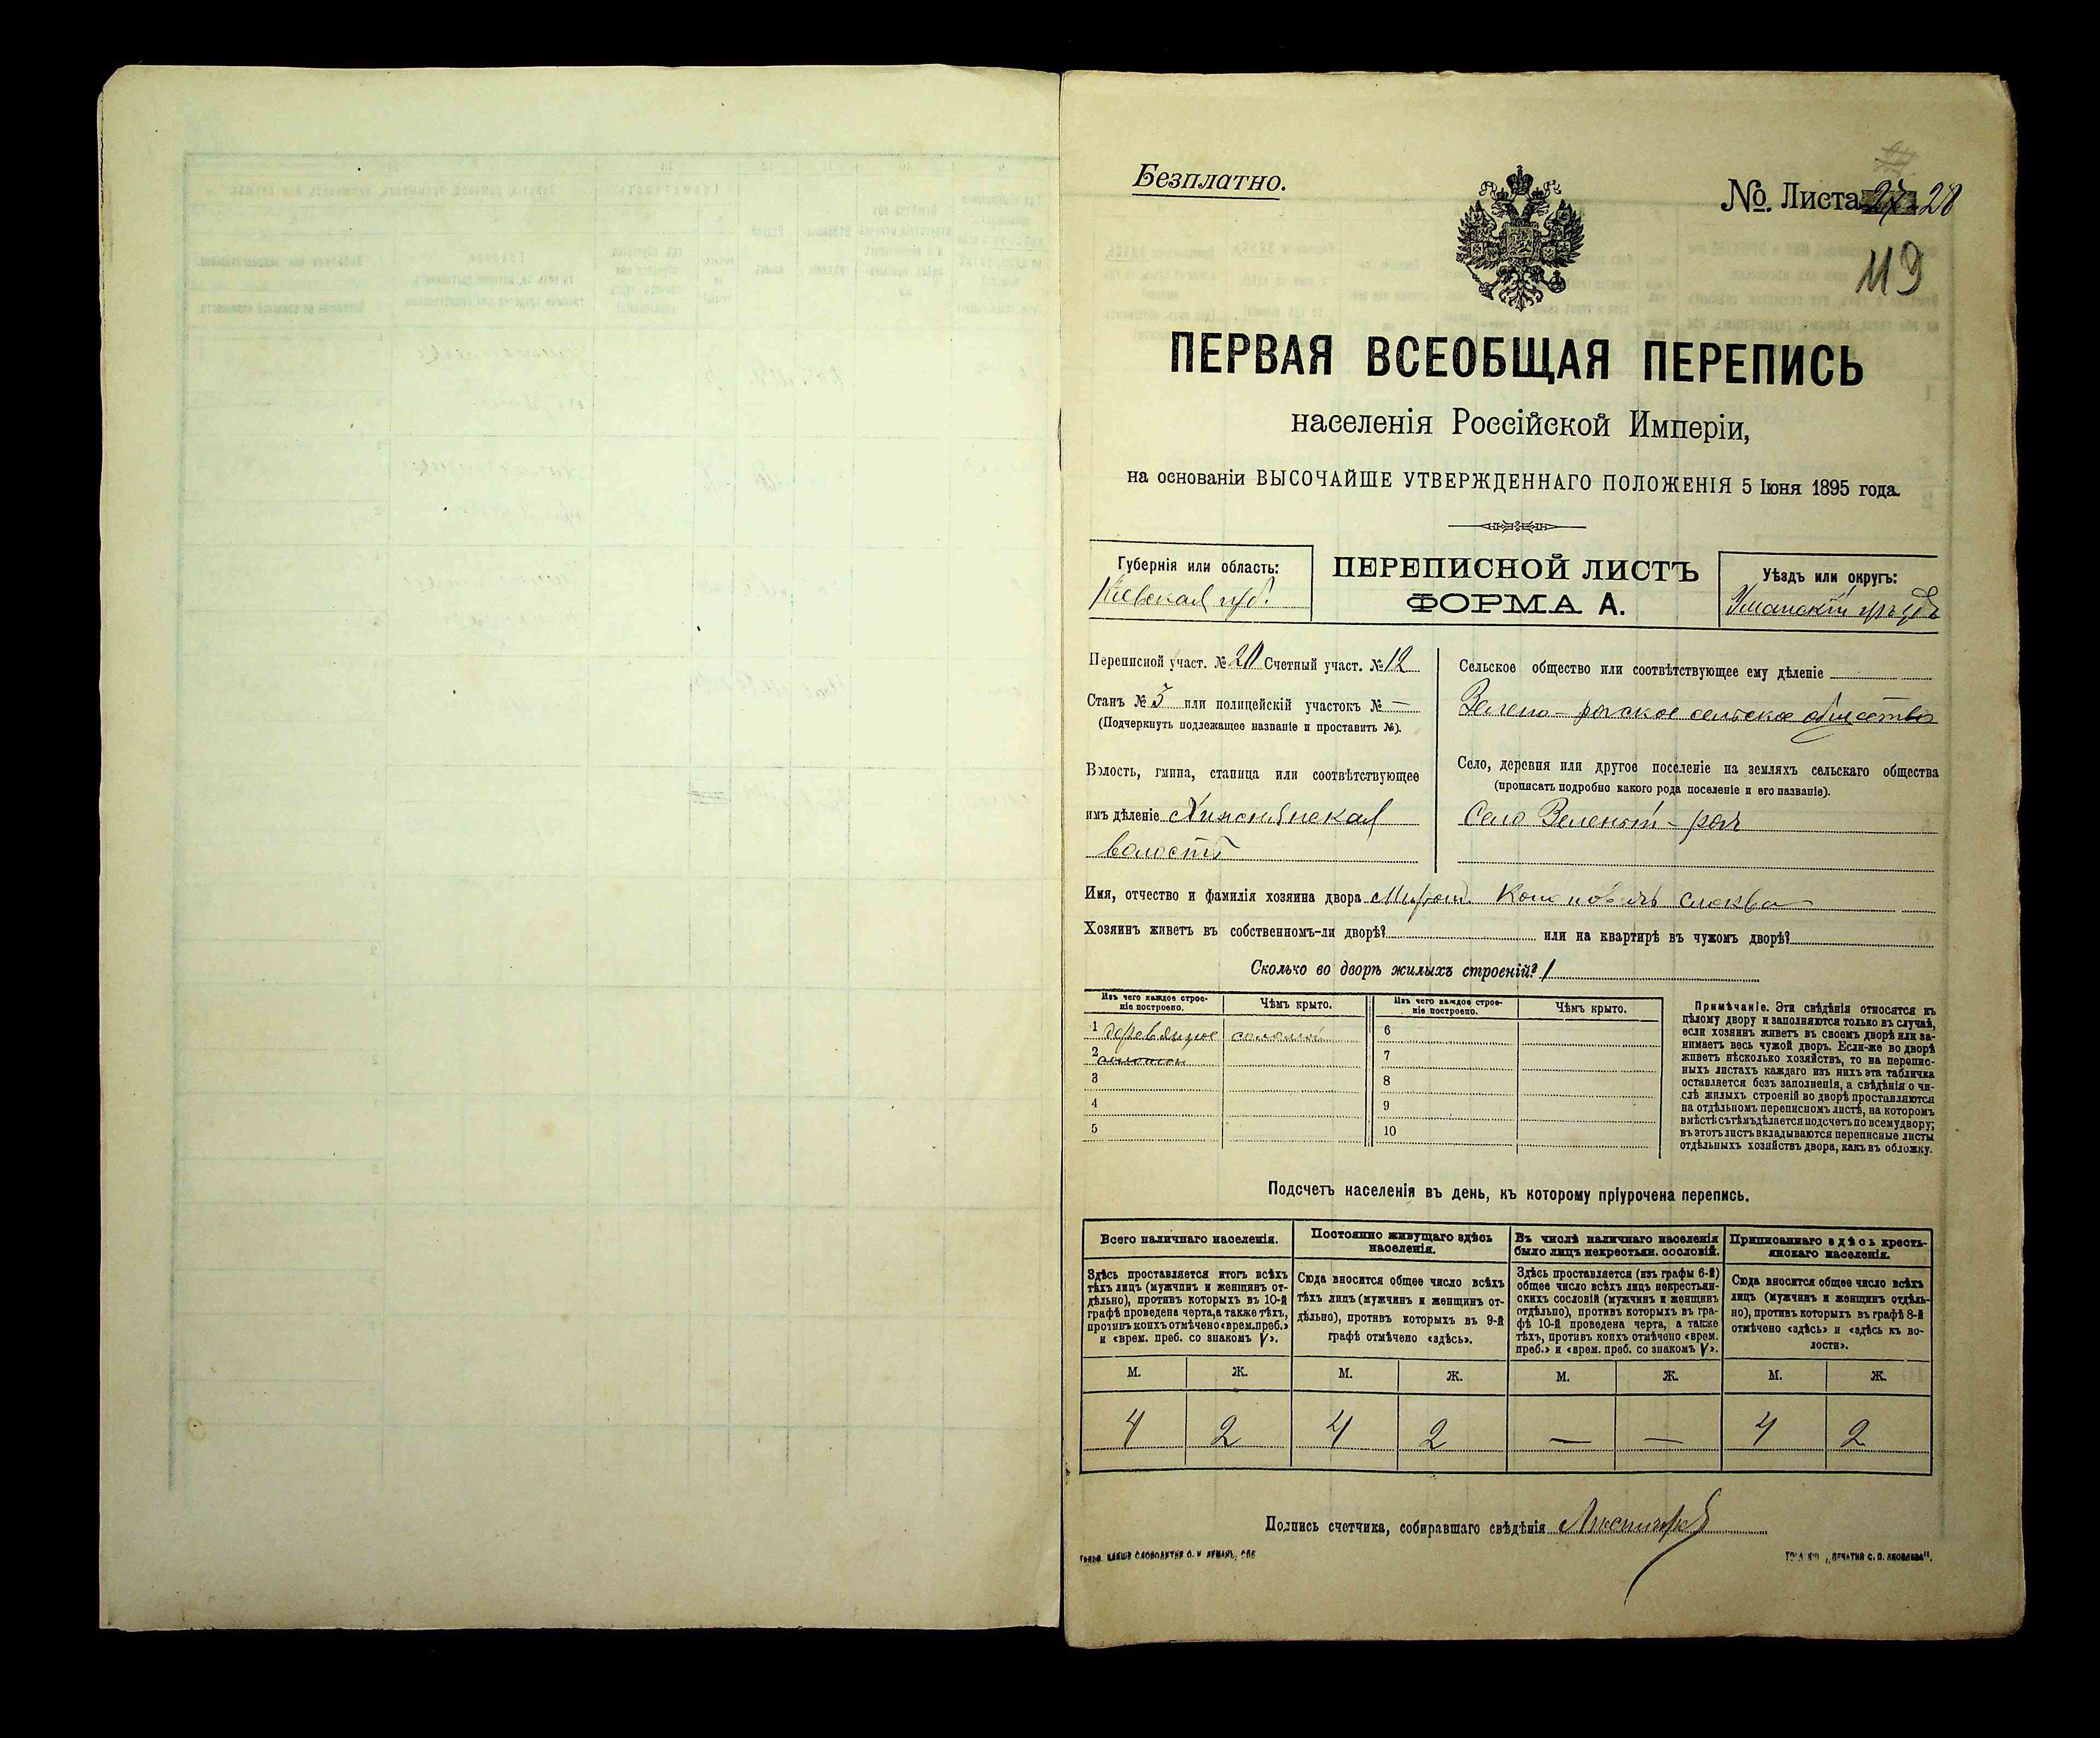 Безплатно.
№. Листа 28
119
ПЕРВАЯ ВСЕОБЩАЯ ПЕРЕПИСЬ
населенія Россійской Имперіи,
на основаніи ВЫСОЧАЙШЕ УТВЕРЖДЕННАГО ПОЛОЖЕНІЯ 5 Іюня 1895 года.
Губернія или область:
Кіевская губ.
ПЕРЕПИСНОЙ ЛИСТЪ
ФОРМА А.
Уѣздъ или округъ:
Уманскій уѣздъ
Переписной участ. № 20 Счетный участ. № 12
Станъ № 5 или полицейскій участокъ № —
(Подчеркнуть подлежащее названіе и проставить №).
Волость, гмина, станица или соотвѣтствующее
имъ дѣленіе
волость
Сельское общество или соотвѣтствующее ему дѣленіе
Зелено-рогское сельское общество
Село, деревня или другое поселеніе на земляхъ сельскаго общества
(прописать подробно какого рода поселеніе и его названіе).
Село Зеленый-рогъ
Имя, отчество и фамилія хозяина двора Миронъ Кононовичъ
Хозяинъ живетъ въ собственномъ-ли дворѣ? или на квартирѣ въ чужомъ дворѣ?
Сколько во дворѣ жилыхъ строеній? 1
Изъ чего каждое строе-
ніе построено.
Чѣмъ крыто.
1 деревянное соломой
2
3
4
5
Изъ чего каждое строе-
ніе построено.
Чѣмъ крыто.
6
7
8
9
10
Примѣчаніе. Эти свѣдѣнія относятся къ
цѣлому двору и заполняются только въ случаѣ,
если хозяинъ живетъ въ своемъ дворѣ или за-
нимаетъ весь чужой дворъ. Если-же во дворѣ
живетъ нѣсколько хозяйствъ, то на перепис-
ныхъ листахъ каждаго изъ нихъ эта табличка
оставляется безъ заполненія, а свѣдѣнія о чи-
слѣ жилыхъ строеній во дворѣ проставляются
на отдѣльномъ переписномъ листѣ, на которомъ
вмѣстѣ съ тѣмъ дѣлается подсчетъ по всему двору;
въ этотъ листъ вкладываются переписные листы
отдѣльныхъ хозяйствъ двора, какъ въ обложку.
Подсчетъ населенія въ день, къ которому пріурочена перепись.
Всего наличнаго населенія.
Здѣсь проставляется итогъ всѣхъ
тѣхъ лицъ (мужчинъ и женщинъ от-
дѣльно), противъ которыхъ въ 10-й
графѣ проведена черта, а также тѣхъ,
противъ коихъ отмѣчено «врем. преб.»
и «врем. преб. со знакомъ V».
М. Ж.
4 2
Постоянно живущаго здѣсь
населенія.
Сюда вносится общее число всѣхъ
тѣхъ лицъ (мужчинъ и женщинъ от-
дѣльно), противъ которыхъ въ 9-й
графѣ отмѣчено «здѣсь».
М. Ж.
4 2
Въ числѣ наличнаго населенія
было лицъ некрестьян. сословій.
Здѣсь проставляется (изъ графы 6-й)
общее число всѣхъ лицъ некрестьян-
скихъ сословій (мужчинъ и женщинъ
отдѣльно), противъ которыхъ въ гра-
фѣ 10-й проведена черта, а также
тѣхъ, противъ коихъ отмѣчено «врем.
преб.» и «врем. преб. со знакомъ V».
М. Ж.
— —
Приписаннаго здѣсь кресть-
янскаго населенія.
Сюда вносится общее число всѣхъ
лицъ (мужчинъ и женщинъ отдѣль-
но), противъ которыхъ въ графѣ 8-й
отмѣчено «здѣсь» и «здѣсь къ во-
лости».
М. Ж.
4 2
Подпись счетчика, собиравшаго свѣдѣнія